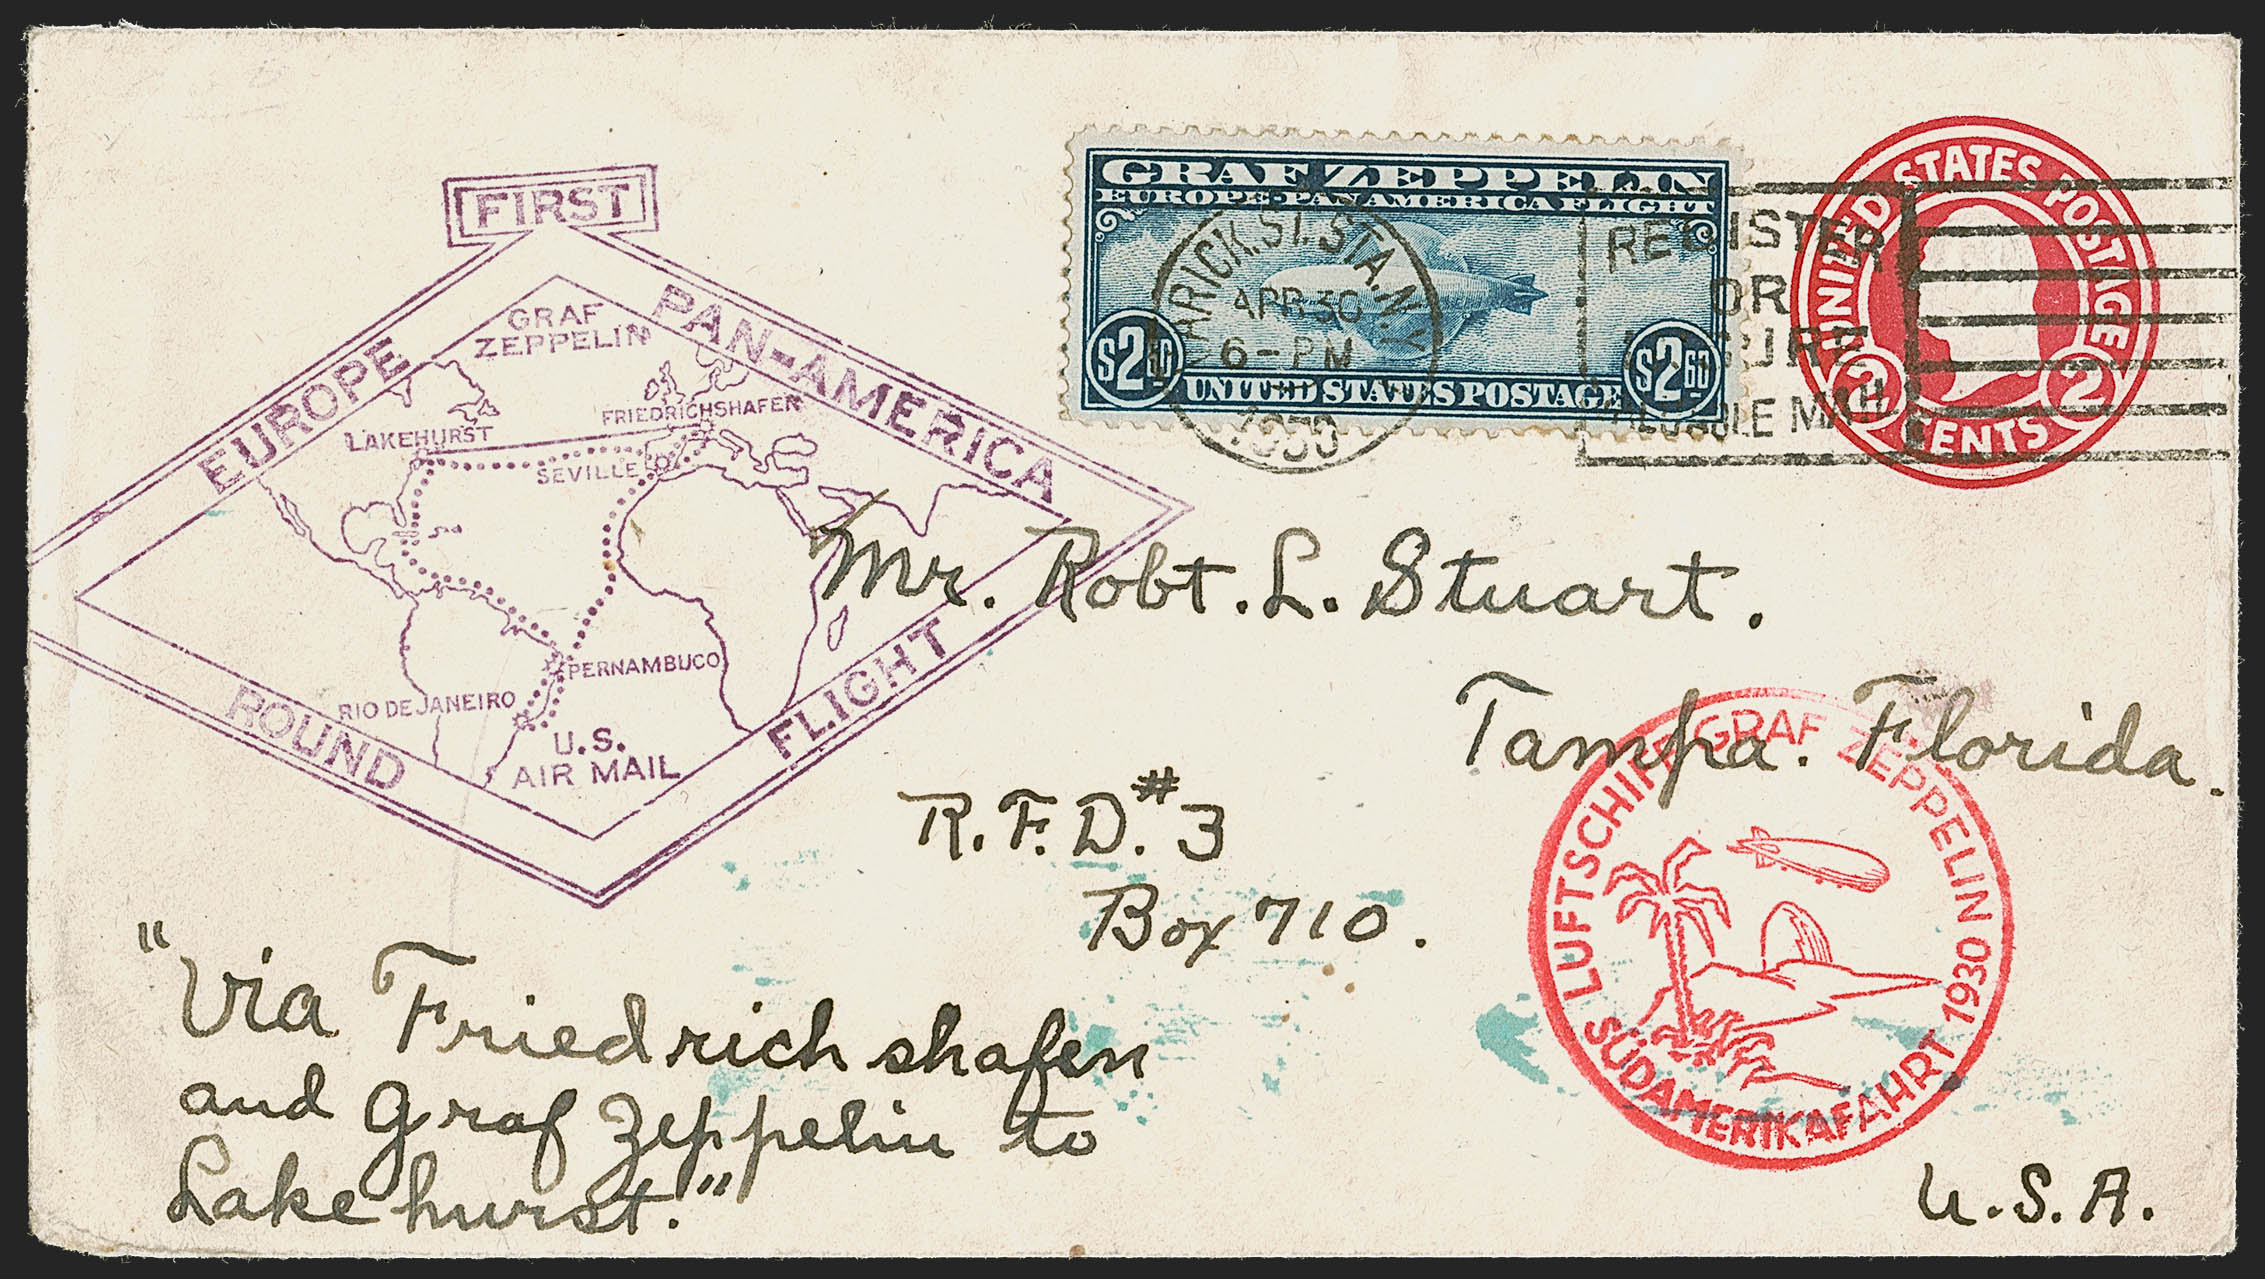 FIRST
EUROPE PAN-AMERICA
ROUND FLIGHT
GRAF
ZEPPELIN
FRIEDRICHSHAFEN
LAKEHURST
SEVILLE
PERNAMBUCO
RIO DE JANEIRO
U.S.
AIR MAIL
GRAF ZEPPELIN
EUROPE-PAN AMERICA FLIGHT
$2.60 $2.60
UNITED STATES POSTAGE
VARICK.ST.STA.N.Y.
APR 30
6-PM
1930
REGISTER
OR
INSURE
VALUABLE MAIL
UNITED STATES POSTAGE
2 CENTS 2
Mr. Robt. L. Stuart.
Tampa. Florida.
R.F.D.#3
Box 710.
"Via Friedrichshafen
and Graf Zeppelin to
Lakehurst."
LUFTSCHIFF GRAF ZEPPELIN 1930
SÜDAMERIKAFAHRT
U.S.A.